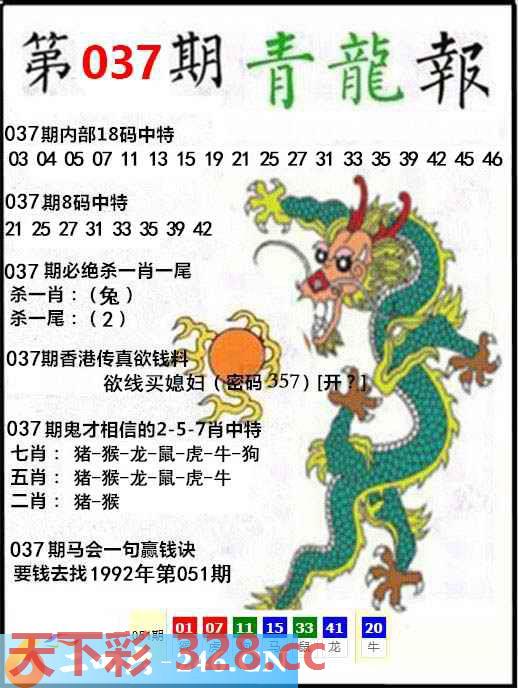 第037期青龍報
037期内部18码中特
03 04 05 07 11 13 15 19 21 25 27 31 33 35 39 42 45 46
037期8码中特
21 25 27 31 33 35 39 42
037期必绝杀一肖一尾
杀一肖：（兔）
杀一尾：（2）
037期香港传真欲钱料
欲线买媳妇（密码357)[开？]
037期鬼才相信的2-5-7肖中特
七肖：猪-猴-龙-鼠-虎-牛-狗
五肖：猪-猴-龙-鼠-虎-牛
二肖：猪-猴
037期马会一句赢钱诀
要钱去找1992年第051期
01 07 11 15 33 41 20
虎 马 鼠 龙 牛
天下彩-328.cc